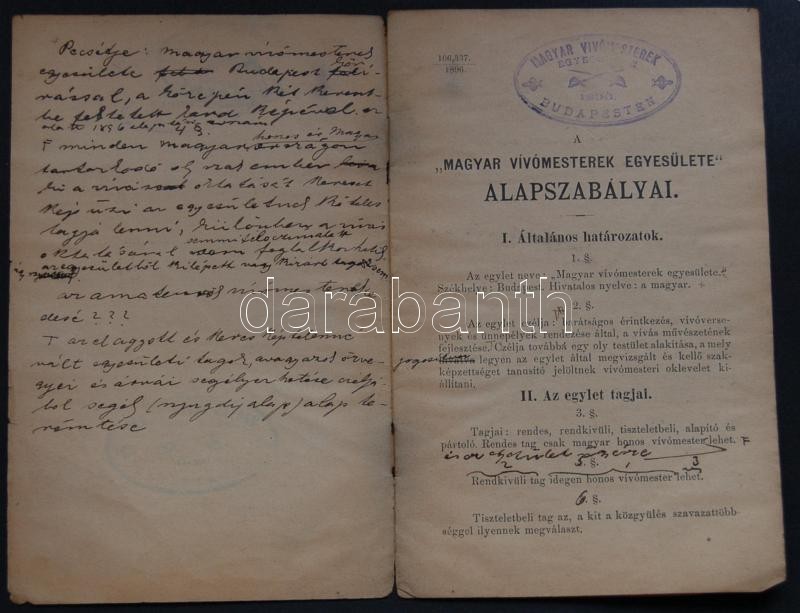 Pecsétje: magyar vívómesterek
egyesülete Budapest kör
írással, a közepén két kereszt-
be fektetett kard képével
alatt 1896
4 §.
honos és Magyar
F minden magyarországon
tartozkodó oly szakember
ki a vívás oktatását kereset
kép űzi az egyesületnek köteles
tagja lenni, különben a vívás
oktatásával semmi foglalkozhatik
az egyesületből kilépett vagy kizárt tag sem
az amateur vívómesterek
desé ? ? ?
T az elaggott és kereset képtelenné
vált egyesületi tagok, avagy azok özve-
gyei és árvái segélyezhetése czéljá-
ból segély (nyugdíj alap) alap te-
remtése
106,337.
1896.
MAGYAR VÍVÓMESTEREK
EGYESÜLETE
BUDAPESTEN
A
„MAGYAR VÍVÓMESTEREK EGYESÜLETE"
ALAPSZABÁLYAI.
I. Általános határozatok.
1. §.
Az egylet neve: „Magyar vívómesterek egyesülete."
Székhelye: Budapest. Hivatalos nyelve: a magyar. +
2. §.
Az egylet czélja: barátságos érintkezés, vívóverse-
nyek és ünnepélyek rendezése által, a vívás művészetének
fejlesztése. Czélja továbbá egy oly testület alakítása, a mely
jogosított legyen az egylet által megvizsgált és kellő szak-
képzettséget tanusitó jelöltnek vívómesteri oklevelet ki-
állitani.
II. Az egylet tagjai.
3. §.
Tagjai: rendes, rendkivüli, tiszteletbeli, alapitó és
pártoló. Rendes tag csak magyar honos vívómester lehet. F
és az
2 5. §. 1 3
Rendkivüli tag idegen honos vívómester lehet.
6 §.
Tiszteletbeli tag az, a kit a közgyülés szavazattöbb-
séggel ilyennek megválaszt.
darabanth